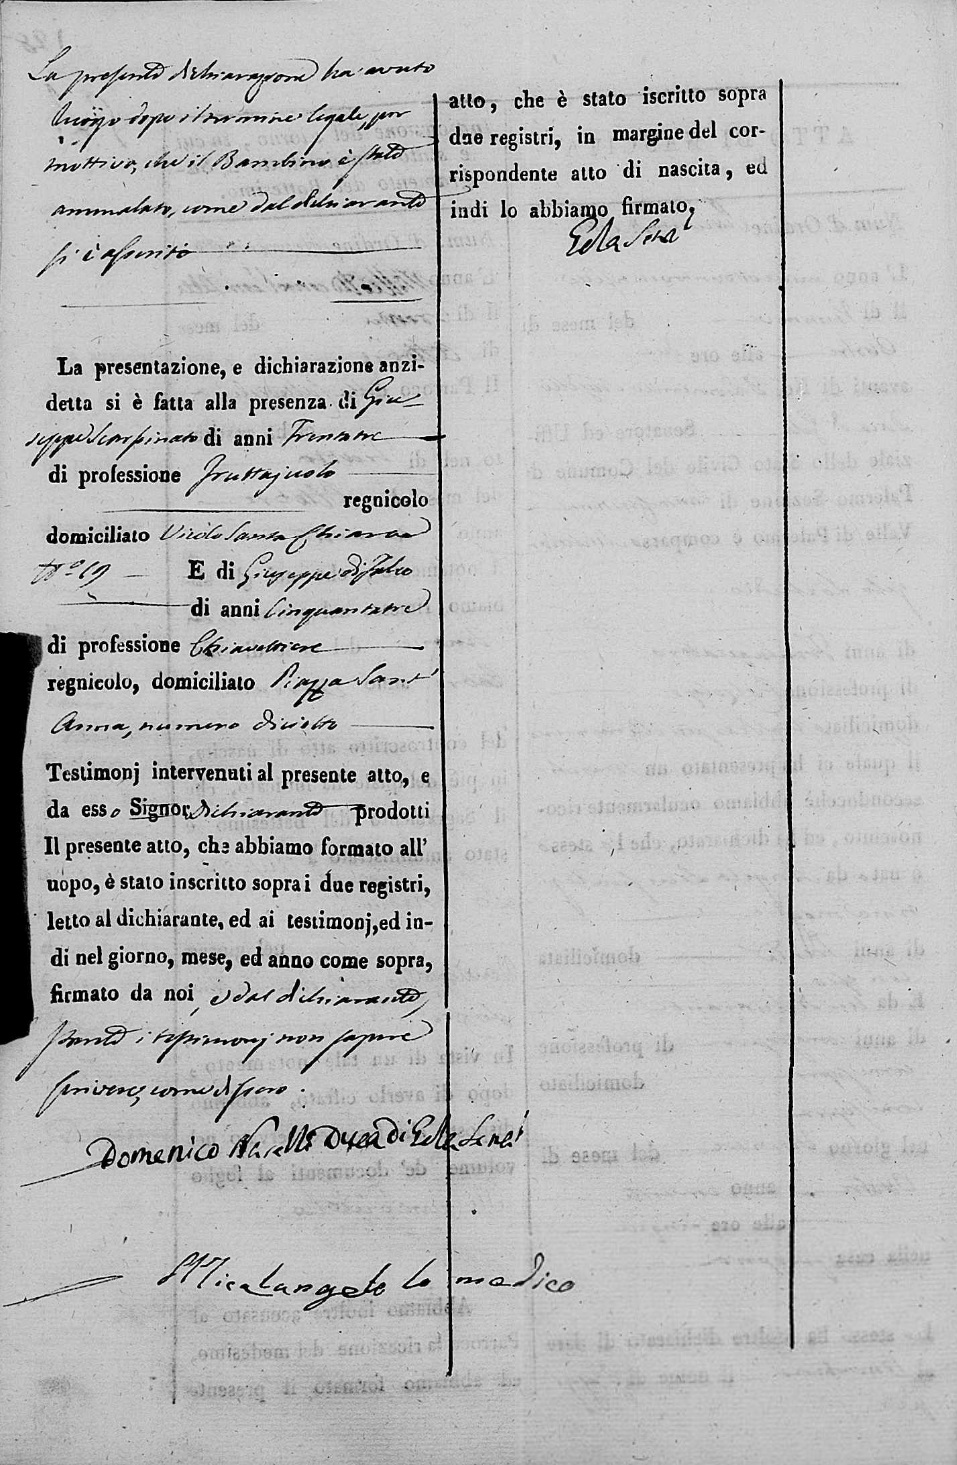 La presente dichiarazione ha avuto
luogo dopo il termine legale, per
mottivo, che il Bambino è stato
ammalato, come dal dichiarante
si è asserito
La presentazione, e dichiarazione anzi-
detta si è fatta alla presenza di Giu-
seppe Scarpinato di anni Trentatre
di professione fruttajuolo
regnicolo
domiciliato Vicolo Santa Chiara
N.º 19 E di Giuseppe di Falco
di anni Cinquantatre
di professione Chiavettiere
regnicolo, domiciliato Piazza Sant'
Anna, numero diciotto
Testimonj intervenuti al presente atto, e
da esso Signor dichiarante prodotti
Il presente atto, che abbiamo formato all'
uopo, è stato inscritto sopra i due registri,
letto al dichiarante, ed ai testimonj, ed in-
di nel giorno, mese, ed anno come sopra,
firmato da noi, e dal dichiarante,
i testimonj non sapere
scrivere, come dissero.
Domenico Naselli Duca di Gela Senat
Micalangelo lo medico
atto, che è stato iscritto sopra
due registri, in margine del cor-
rispondente atto di nascita, ed
indi lo abbiamo firmato,
Gela Senat